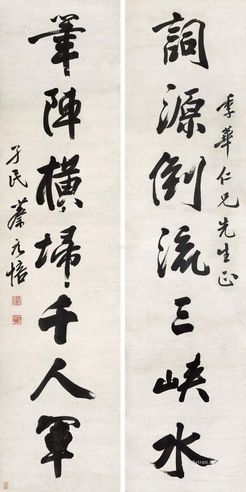 季華仁兄先生正
詞源倒流三峽水
筆陣橫埽千人軍
孑民蔡元培